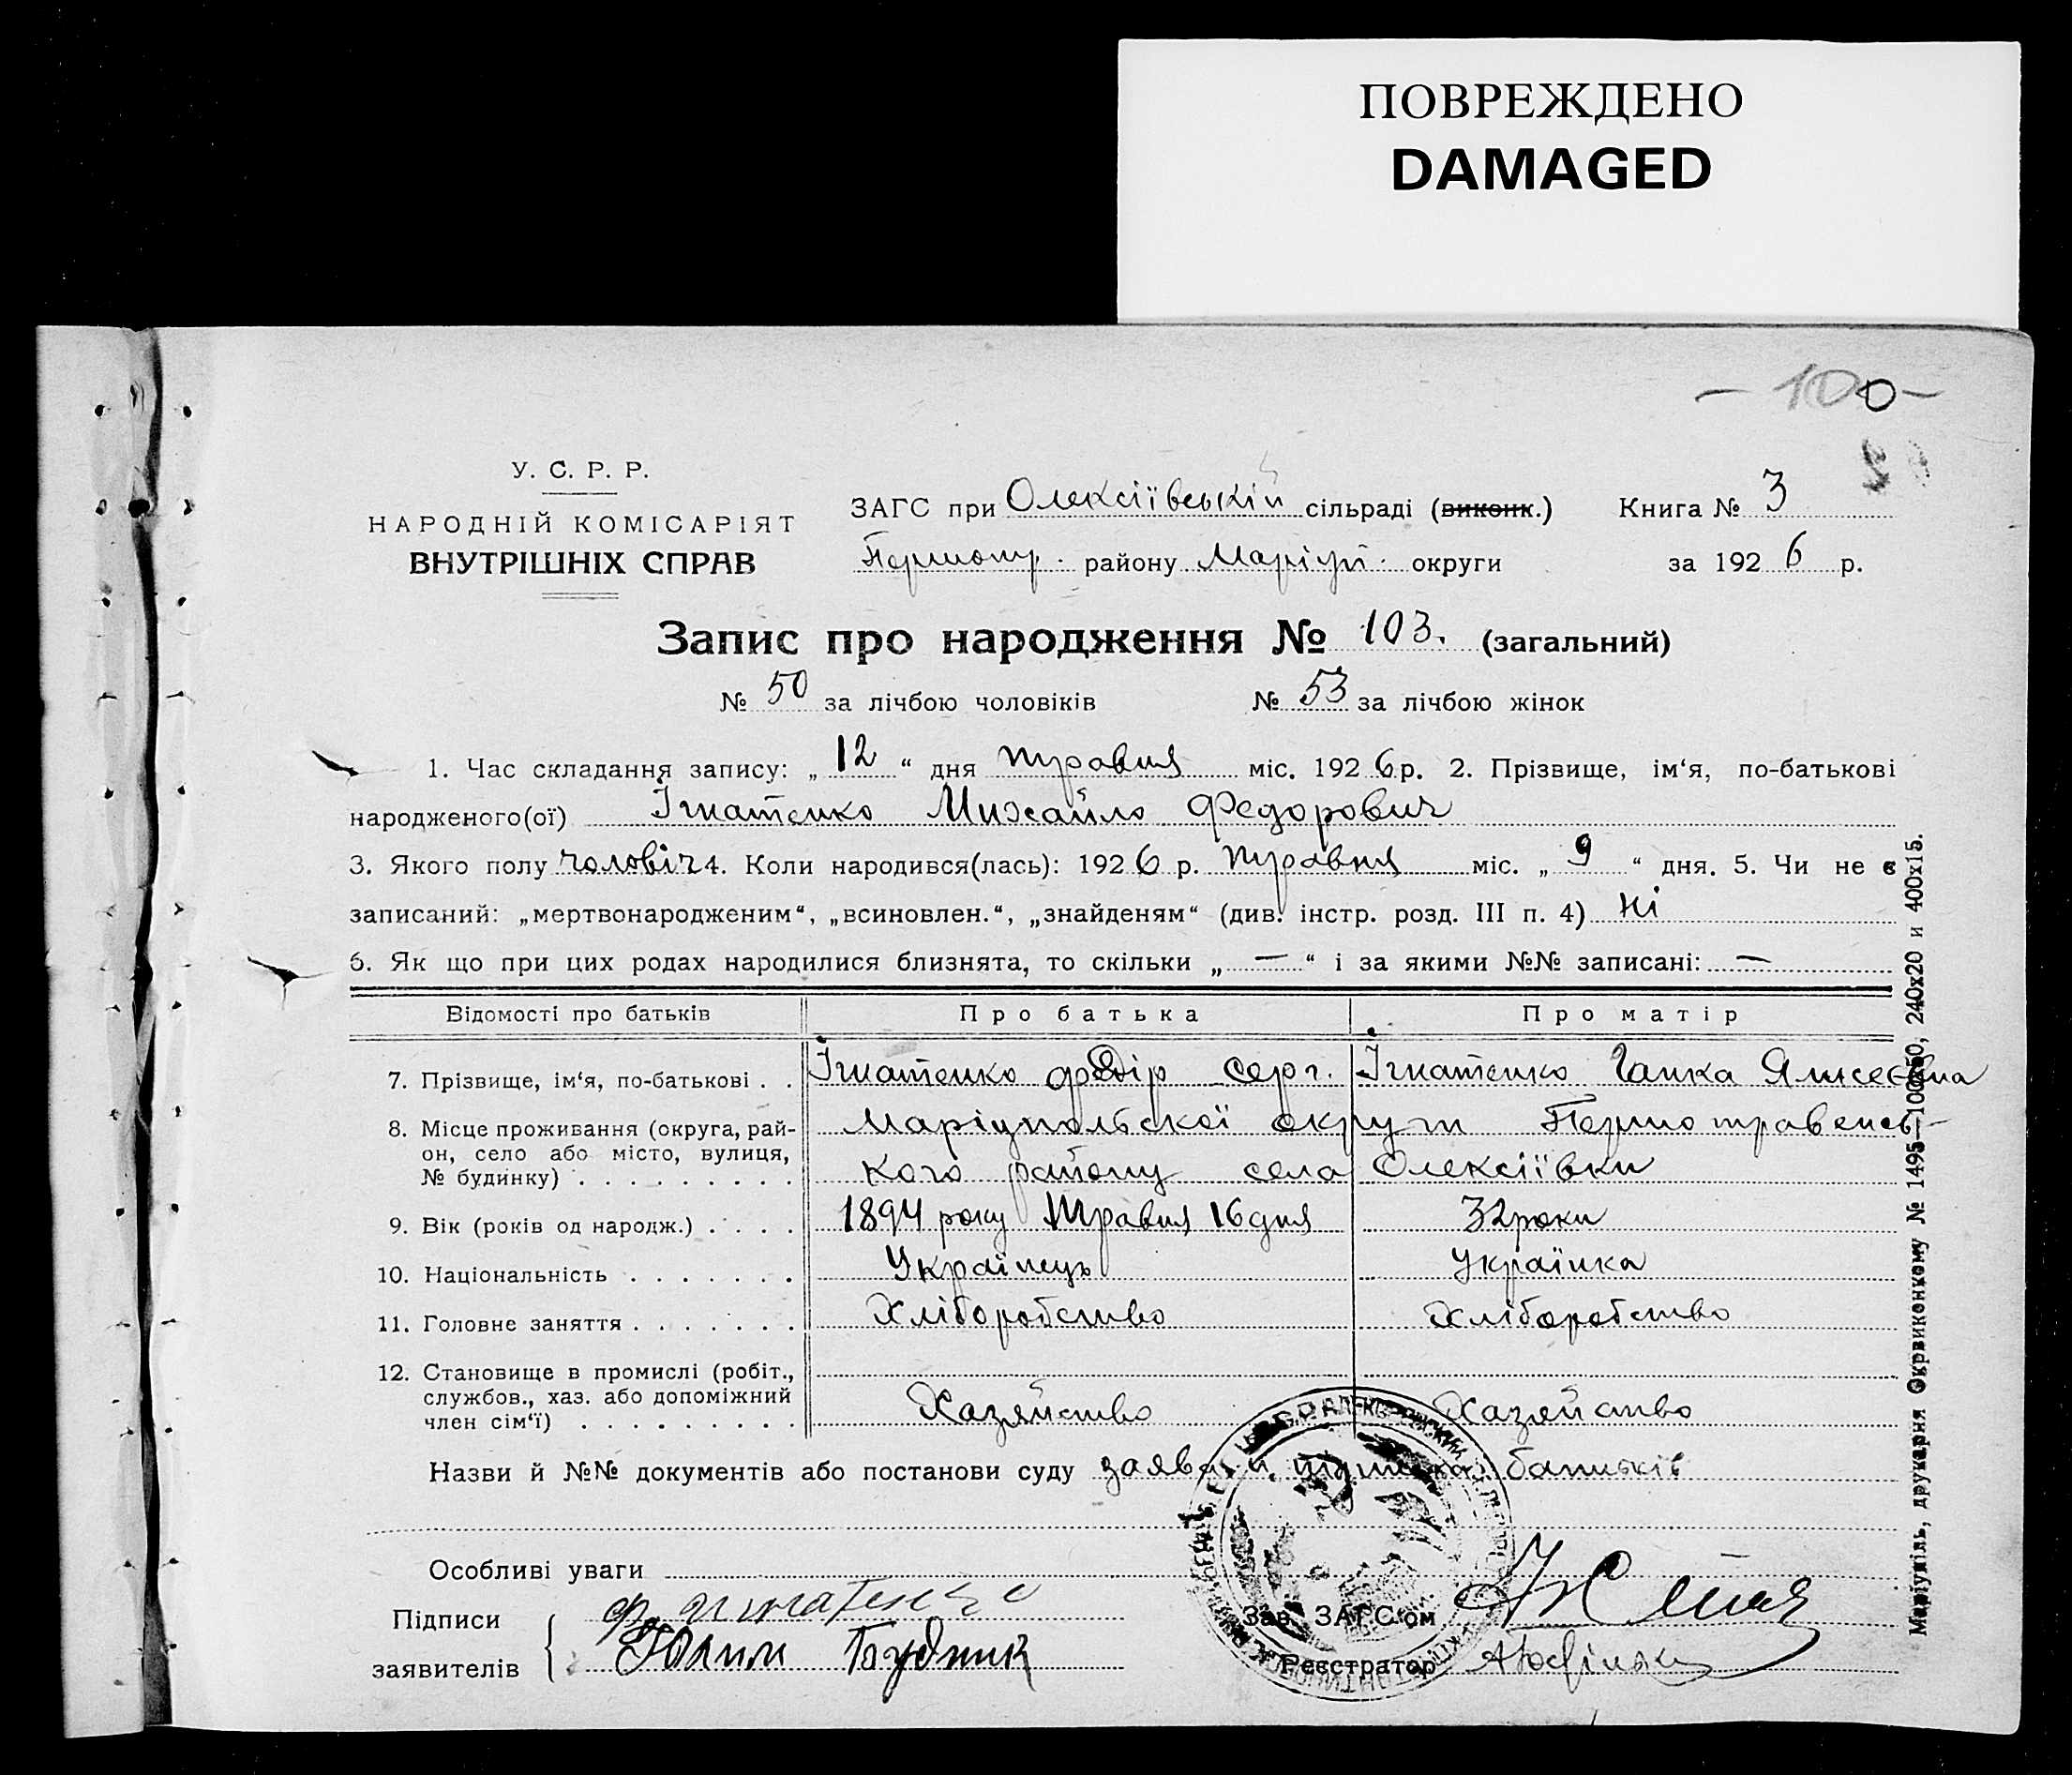 ПОВРЕЖДЕНО
DAMAGED
- 100 -
У. С. Р. Р.
НАРОДНІЙ КОМІСАРІЯТ
ВНУТРІШНІХ СПРАВ
ЗАГС при Олексіївській сільраді (виконк.) Книга № 3
Першотр. району Маріуп. округи за 1926 р.
Запис про народження № 103. (загальний)
№ 50 за лічбою чоловіків № 53 за лічбою жінок
1. Час складання запису: „12“ дня травня міс. 1926 р. 2. Прізвище, ім‘я, по-батькові
народженого(ої) Ігнатенко Михайло Федорович
3. Якого полу чоловіч 4. Коли народився(лась): 1926 р. травня міс. „9“ дня. 5. Чи не є
записаний: „мертвонародженим“, „всиновлен.“, „знайденям“ (див. інстр. розд. III п. 4) ні
6. Як що при цих родах народилися близнята, то скільки „—“ і за якими №№ записані: —
Відомості про батьків Про батька Про матір
7. Прізвище, ім‘я, по-батькові . . Ігнатенко Федір Серг. Ігнатенко Ганка
8. Місце проживання (округа, рай- Маріупольскої округи Першотравенсь-
он, село або місто, вулиця, кого району села Олексіївки
№ будинку) . . . . . . . . .
9. Вік (років од народж.) . . . . 1894 року Травня 16 дня 32 роки
10. Національність . . . . . . . Українець Українка
11. Головне заняття . . . . . . . Хліборобство Хліборобство
12. Становище в промислі (робіт.,
службов., хаз. або допоміжний Хазяйство Хазяйство
член сім‘ї) . . . . . . . . .
Назви й №№ документів або постанови суду заява й підписка батьків
Особливі уваги
Підписи Ф. Игнатенко Зав. ЗАГС‘ом
заявителів Юхим Будник Реєстратор
Маріупіль, друкарня Окрвиконкому № 1495—100х50, 240х20 и 400х15.